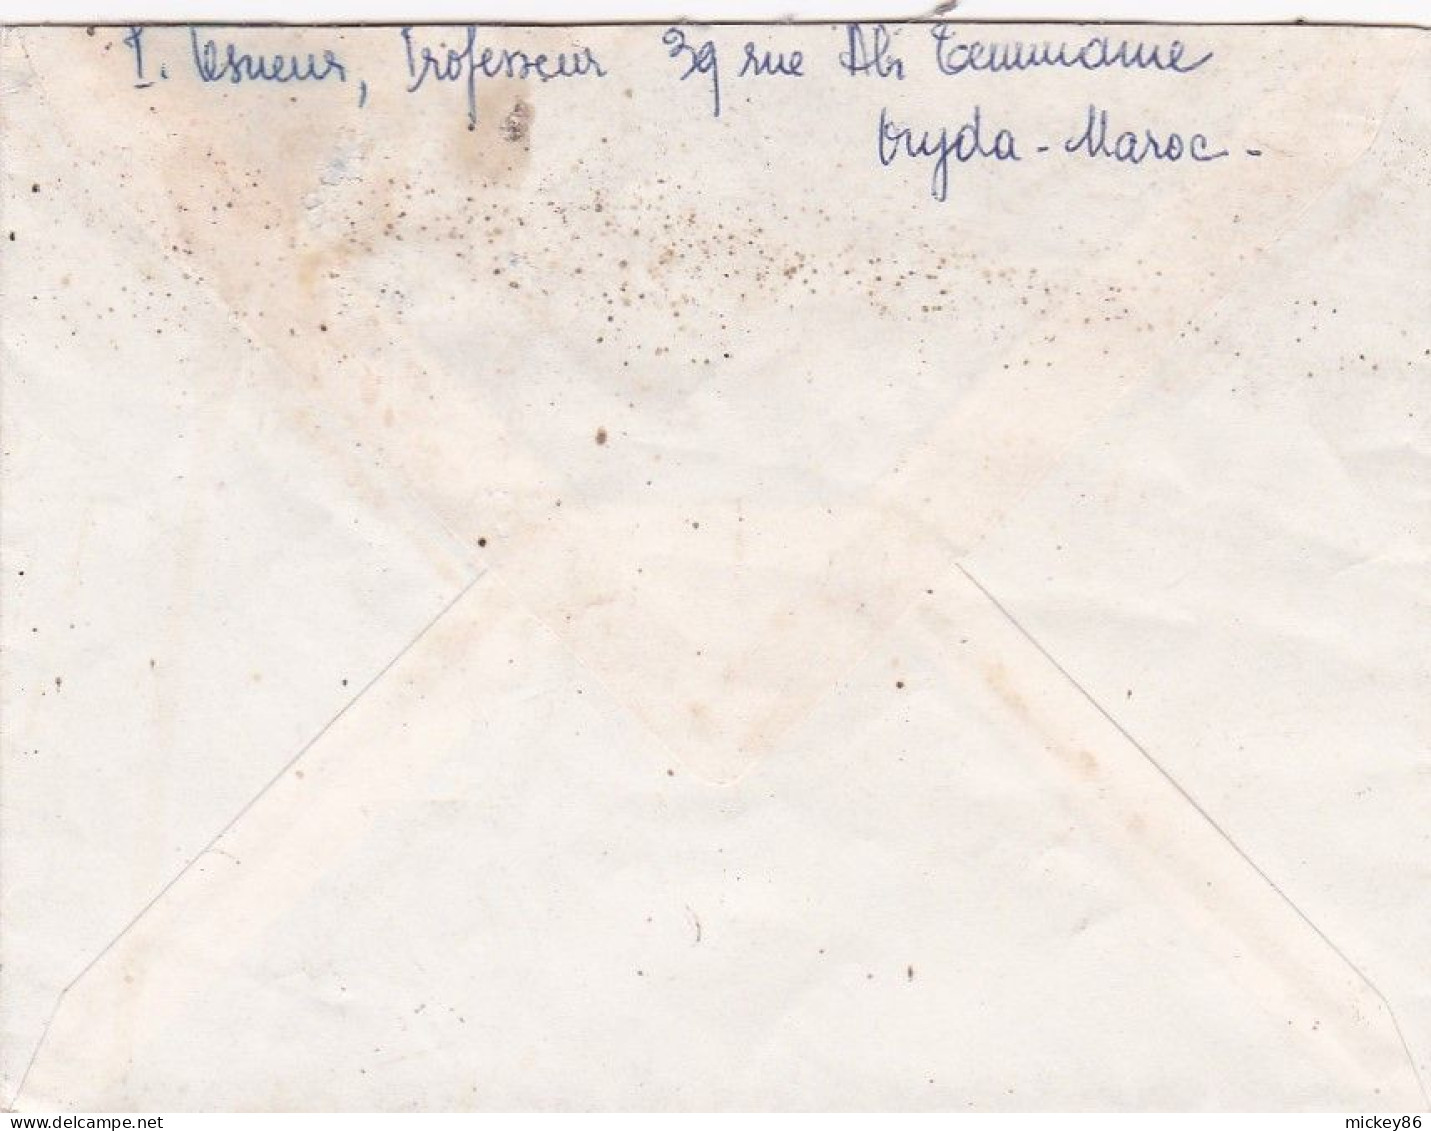 I. Lesueur, Professeur 39 rue Abi Temmame
Oujda - Maroc -
delcampe.net
mickey86